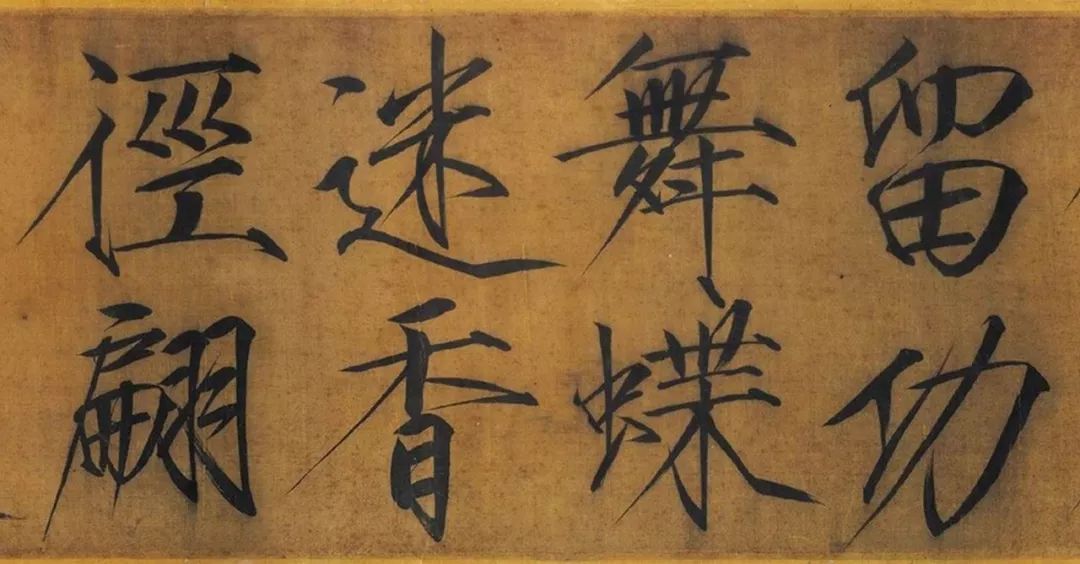 留功
舞蝶
迷香
徑翩